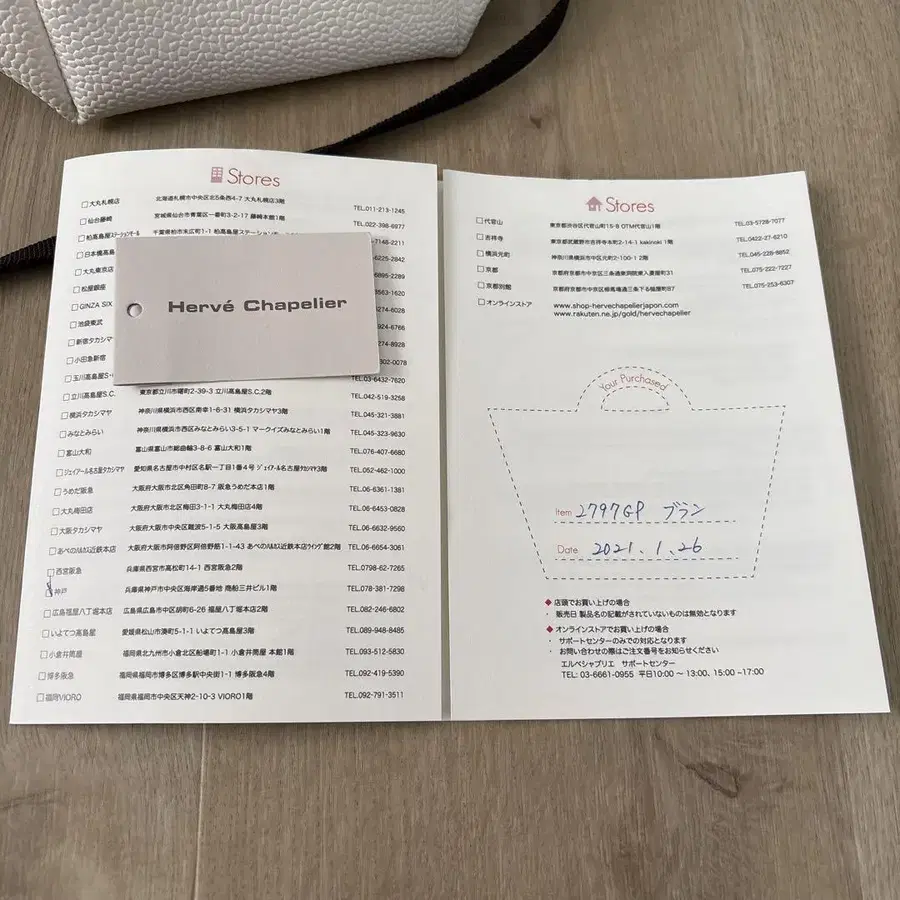 Stores
大丸札幌店 北海道札幌市中央区北5条西4-7 大丸札幌店3階 TEL.011-213-1245
仙台藤崎 宮城県仙台市青葉区一番町3-2-17 藤崎本館1階 TEL.022-398-6977
柏高島屋ステーションモール 千葉県柏市末広町1-1 柏高島屋ステーションモール -7148-2211
日本橋高島 -6225-2842
大丸東京店 -6895-2289
松屋銀座 -3563-1620
GINZA SIX -6274-6028
池袋東武 -6924-6766
新宿タカシマ -6274-8928
小田急新宿 302-0078
玉川高島屋S. TEL.03-6432-7620
立川高島屋S.C. 東京都立川市曙町2-39-3 立川高島屋S.C.2階 TEL.042-519-3258
横浜タカシマヤ 神奈川県横浜市西区南幸1-6-31 横浜タカシマヤ3階 TEL.045-321-3881
みなとみらい 神奈川県横浜市西区みなとみらい3-5-1 マークイズみなとみらい1階 TEL.045-323-9630
富山大和 富山県富山市総曲輪3-8-6 富山大和1階 TEL.076-407-6680
ジェイアール名古屋タカシマヤ 愛知県名古屋市中村区名駅一丁目1番4号 ジェイアール名古屋タカシマヤ3階 TEL.052-462-1000
うめだ阪急 大阪府大阪市北区角田町8-7 阪急うめだ本店1階 TEL.06-6361-1381
大丸梅田店 大阪府大阪市北区梅田3-1-1 大丸梅田店4階 TEL.06-6453-0828
大阪タカシマヤ 大阪府大阪市中央区難波5-1-5 大阪高島屋3階 TEL.06-6632-9560
あべのハルカス近鉄本店 大阪府大阪市阿倍野区阿倍野筋1-1-43 あべのハルカス近鉄本店ウイング館2階 TEL.06-6654-3061
西宮阪急 兵庫県西宮市高松町14-1 西宮阪急2階 TEL.0798-62-7265
神戸 兵庫県神戸市中央区海岸通5番地 商船三井ビル1階 TEL.078-381-7298
広島福屋八丁堀本店 広島県広島市中区胡町6-26 福屋八丁堀本店2階 TEL.082-246-6802
いよてつ高島屋 愛媛県松山市湊町5-1-1 いよてつ高島屋3階 TEL.089-948-8485
小倉井筒屋 福岡県北九州市小倉北区船場町1-1 小倉井筒屋 本館1階 TEL.093-512-5830
博多阪急 福岡県福岡市博多区博多駅中央街1-1 博多阪急4階 TEL.092-419-5390
福岡VIORO 福岡県福岡市中央区天神2-10-3 VIORO1階 TEL.092-791-3511
Hervé Chapelier
Stores
代官山 東京都渋谷区代官山町15-8 OTM代官山1階 TEL.03-5728-7077
吉祥寺 東京都武蔵野市吉祥寺本町2-14-1 kakinoki 1階 TEL.0422-27-6210
横浜元町 神奈川県横浜市中区元町2-100-1 2階 TEL.045-228-8852
京都 京都府京都市中京区三条通東洞院東入菱屋町31 TEL.075-222-7227
京都別館 京都府京都市中京区柳馬場通三条下る槌屋町87 TEL.075-253-6307
オンラインストア www.shop-hervechapelierjapon.com
www.rakuten.ne.jp/gold/hervechapelier
Your Purchased
Item 2797GP ブラン
Date 2021.1.26
◆店頭でお買い上げの場合
・ 販売日 製品名の記載がされていないものは無効となります
◆オンラインストアでお買い上げの場合
・ サポートセンターのみでの対応となります
・ お問い合わせの際はご注文番号をお知らせください
エルベシャプリエ サポートセンター
TEL: 03-6661-0955 平日10:00 ～ 13:00、15:00 ~17:00